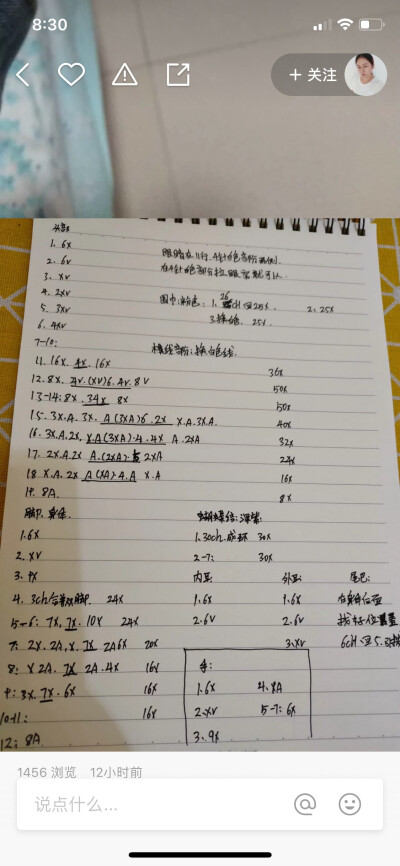 8:30
+ 关注
头部:
1. 6X
2. 6V
3. XV
4. 2XV
5. 3XV
6. 4XV
7-10:
眼睛在11行, 4针白色部分两侧.
在4针白色部分拉眼窝就可以.
围巾:粉色: 1. 26ch 回25X. 2. 25X
3.换白色. 25V.
横线部分:换白色线.
11. 16X. 4V. 16X 36X
12. 8X. 4V. (XV)6. 4V. 8V 50X
13-14: 8X. 34X 8X 50X
15. 3X.A.3X. A(3XA)6.2X X.A.3X.A. 40X
16. 3X.A.2X. X.A(3XA)4.4X A.2XA 32X
17. 2X.A.2X A.(2XA). 2XA 24X
18. X.A.2X A(XA)4.A X.A 16X
19. 8A. 8X
脚, 身体:
1.6X
2. XV
3. 9X
4. 3ch 合并双脚. 24X
5-6: 7X. 7X. 10X 24X
7: 2X.2A,X. 7X 2A6X 20X
8: X 2A. 7X 2A.4X 16X
9: 3X. 7X. 6X 16X
10-11: 16X
12; 8A
1.30ch.成环 30X
2-7: 30X
内耳:
1.6X
2.6V
外耳:
1.6X
2.6V
3.XV
尾巴:
在身体后面
找好位置
6ch 回5.
手:
1.6X 4.8A
2.XV 5-7: 6X
3.9X
1456 浏览 12小时前
说点什么...